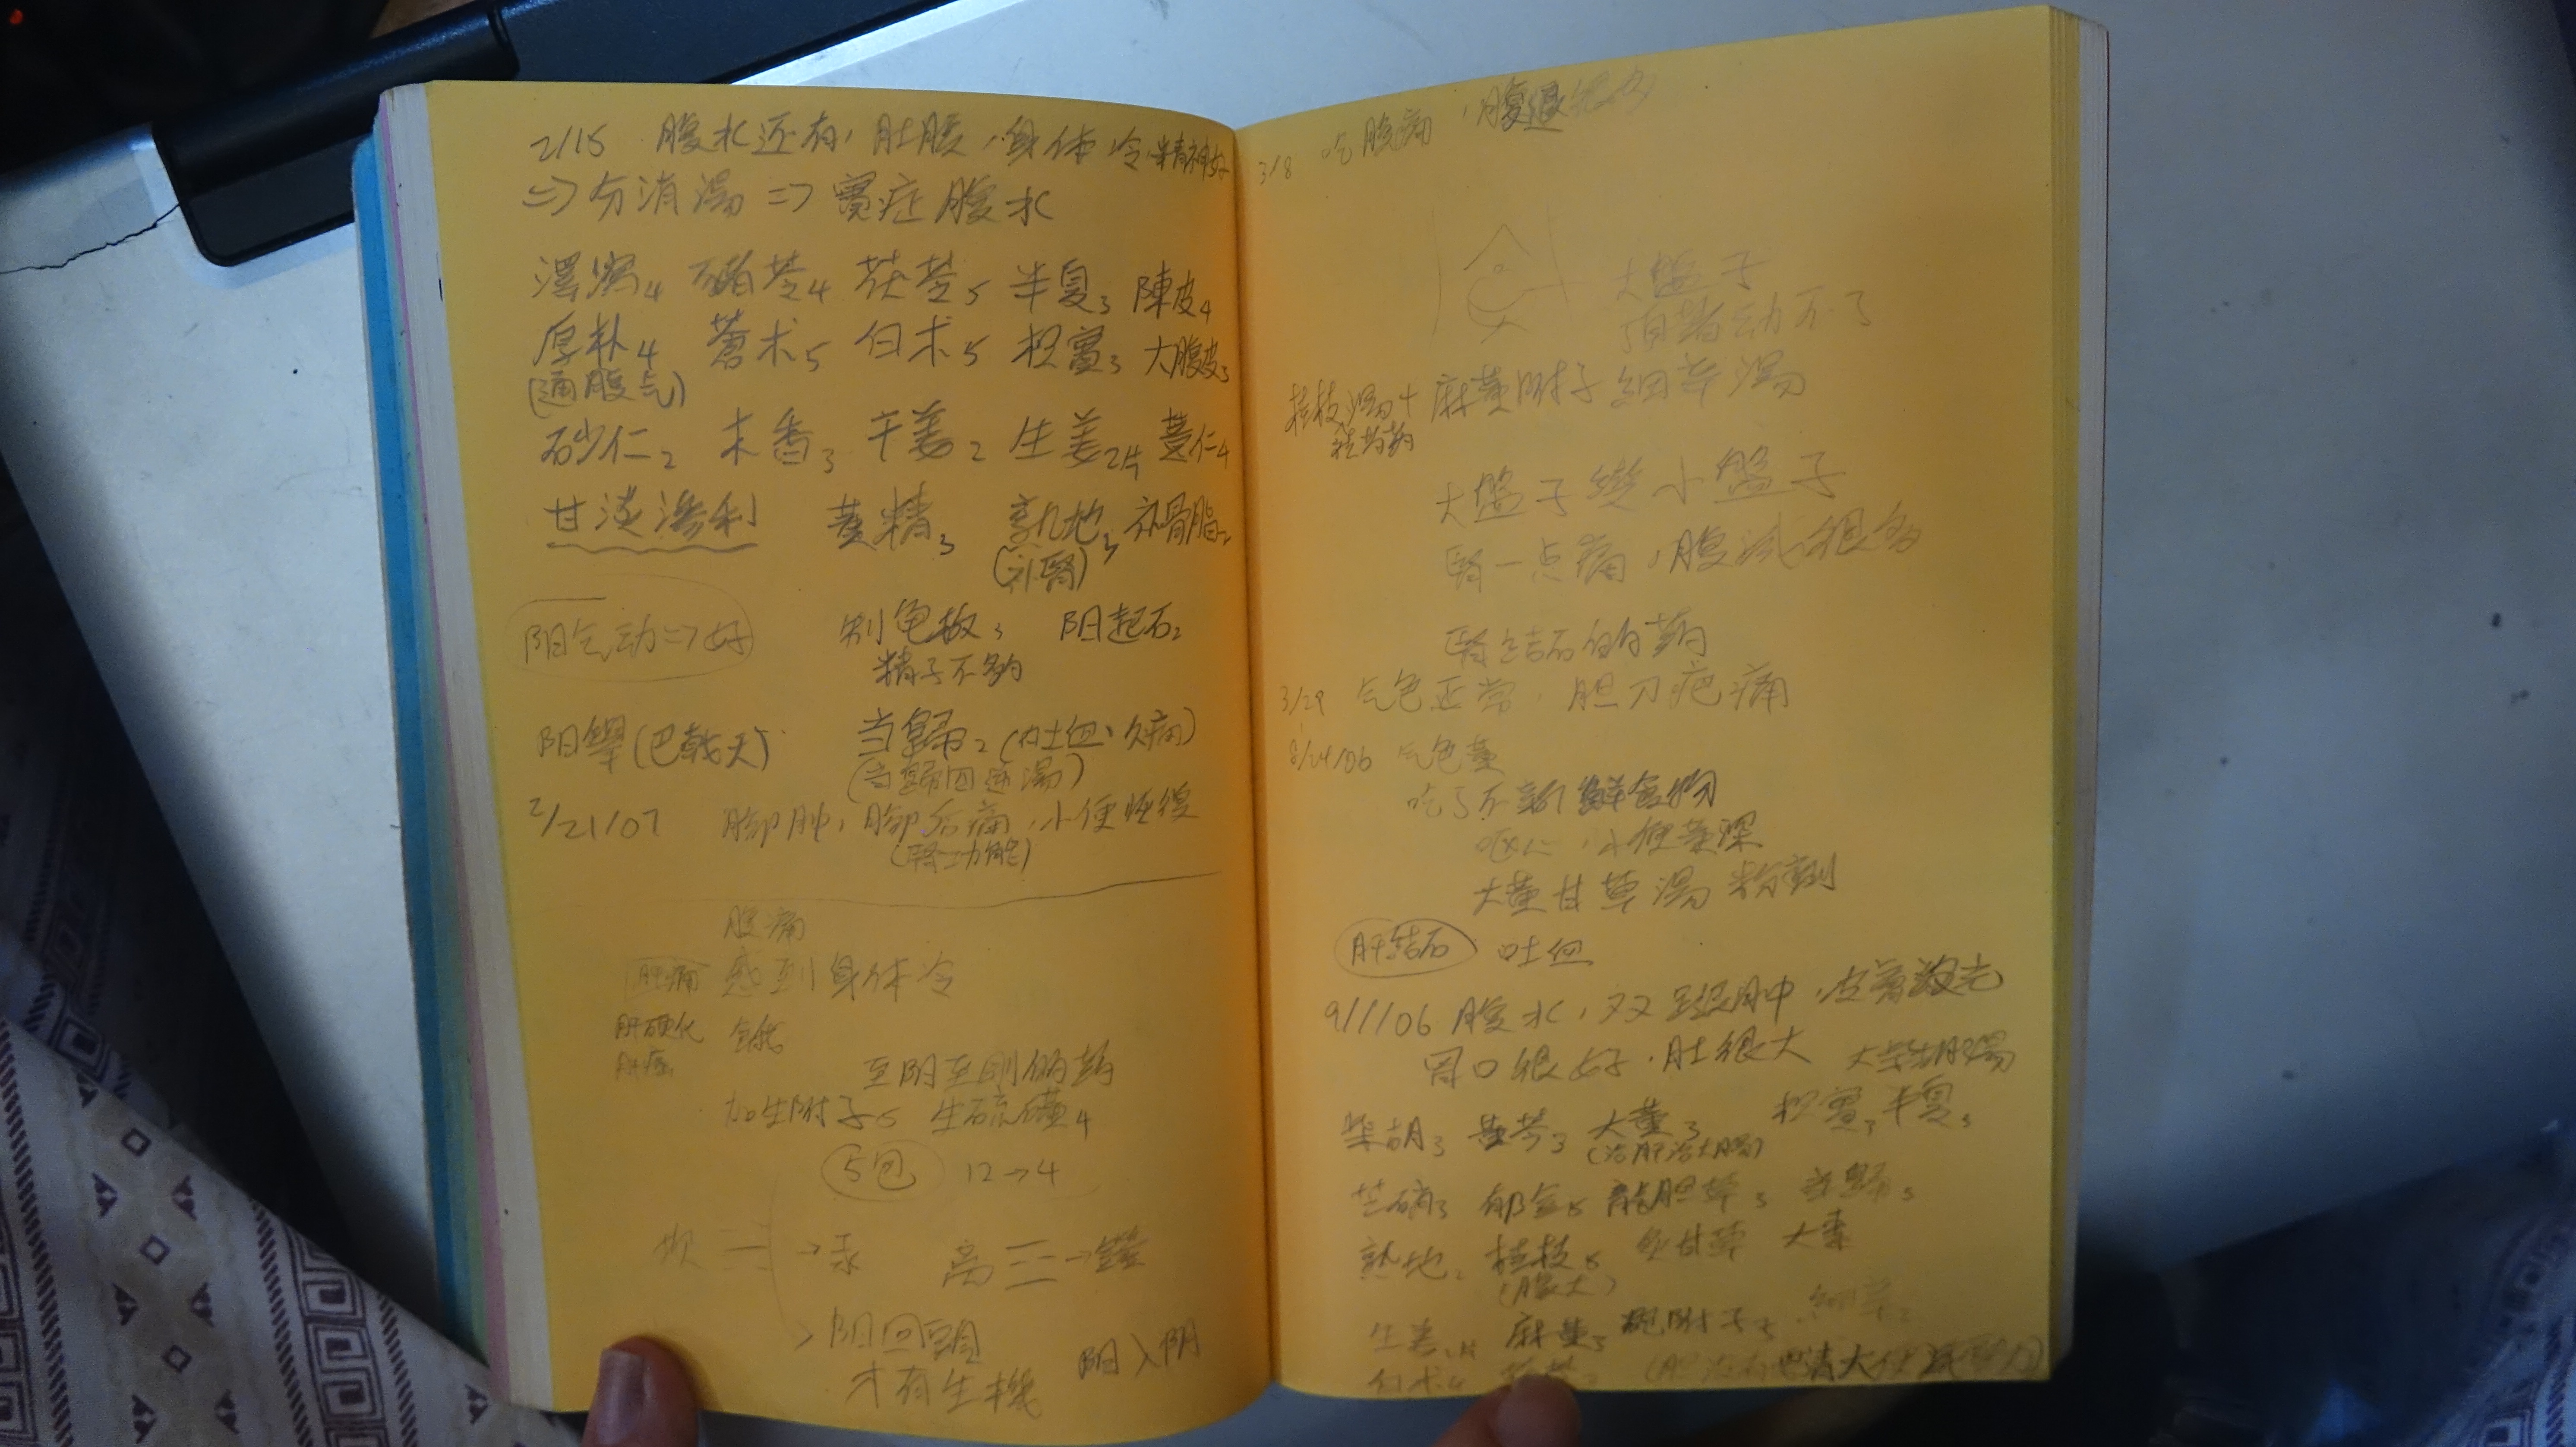 2/15 腹水还有，肚脹，身体冷，精神好
=> 分消湯 => 實症腹水
澤瀉4 豬苓4 茯苓5 半夏3 陳皮4
厚朴4 蒼术5 白术5 枳實3 大腹皮3
(通腹气)
砂仁2 木香3 干姜2 生姜2片 薏仁4
甘淡滲利 黄精3 熟地3 补骨脂2
(补腎)
阳气动=>好 制龟板3 阳起石2
精子不夠
阳舉(巴戟天) 当歸2 (吐血、久病)
(当歸四逆湯)
2/21/07 腳肿，腳后痛，小便恢復
(腎功能)
腹痛
肝病 感到身体冷
肝硬化
肝癌
至阳至剛的药
加生附子5 生硫磺4
5包 12→4
坎 ☵ →汞 离 ☲ →鉛
阳回頭
才有生機 阳入阴
3/8 吃 腹痛
大盤子
頂着动不了
桂枝湯+麻黄附子細辛湯
大盤子變小盤子
腎一点痛，腹減很多
腎结石的药
3/29 气色正常，胆刀疤痛
8/24/06 气色黄
吃了不新鲜食物
呕心，小便黄深
大黄甘草湯
肝结石 吐血
9/1/06 腹水，双足跟肿，皮膚發光
胃口很好，肚很大 大柴胡湯
柴胡3 黄芩3 大黄3 枳實3 半夏3
(治肝治大腸)
芒硝3 郁金5 龍胆草3 当歸3
熟地2 桂枝5 炙甘草 大棗
(腹大)
生姜2片 麻黄3 炮附子3 細辛2
白术4